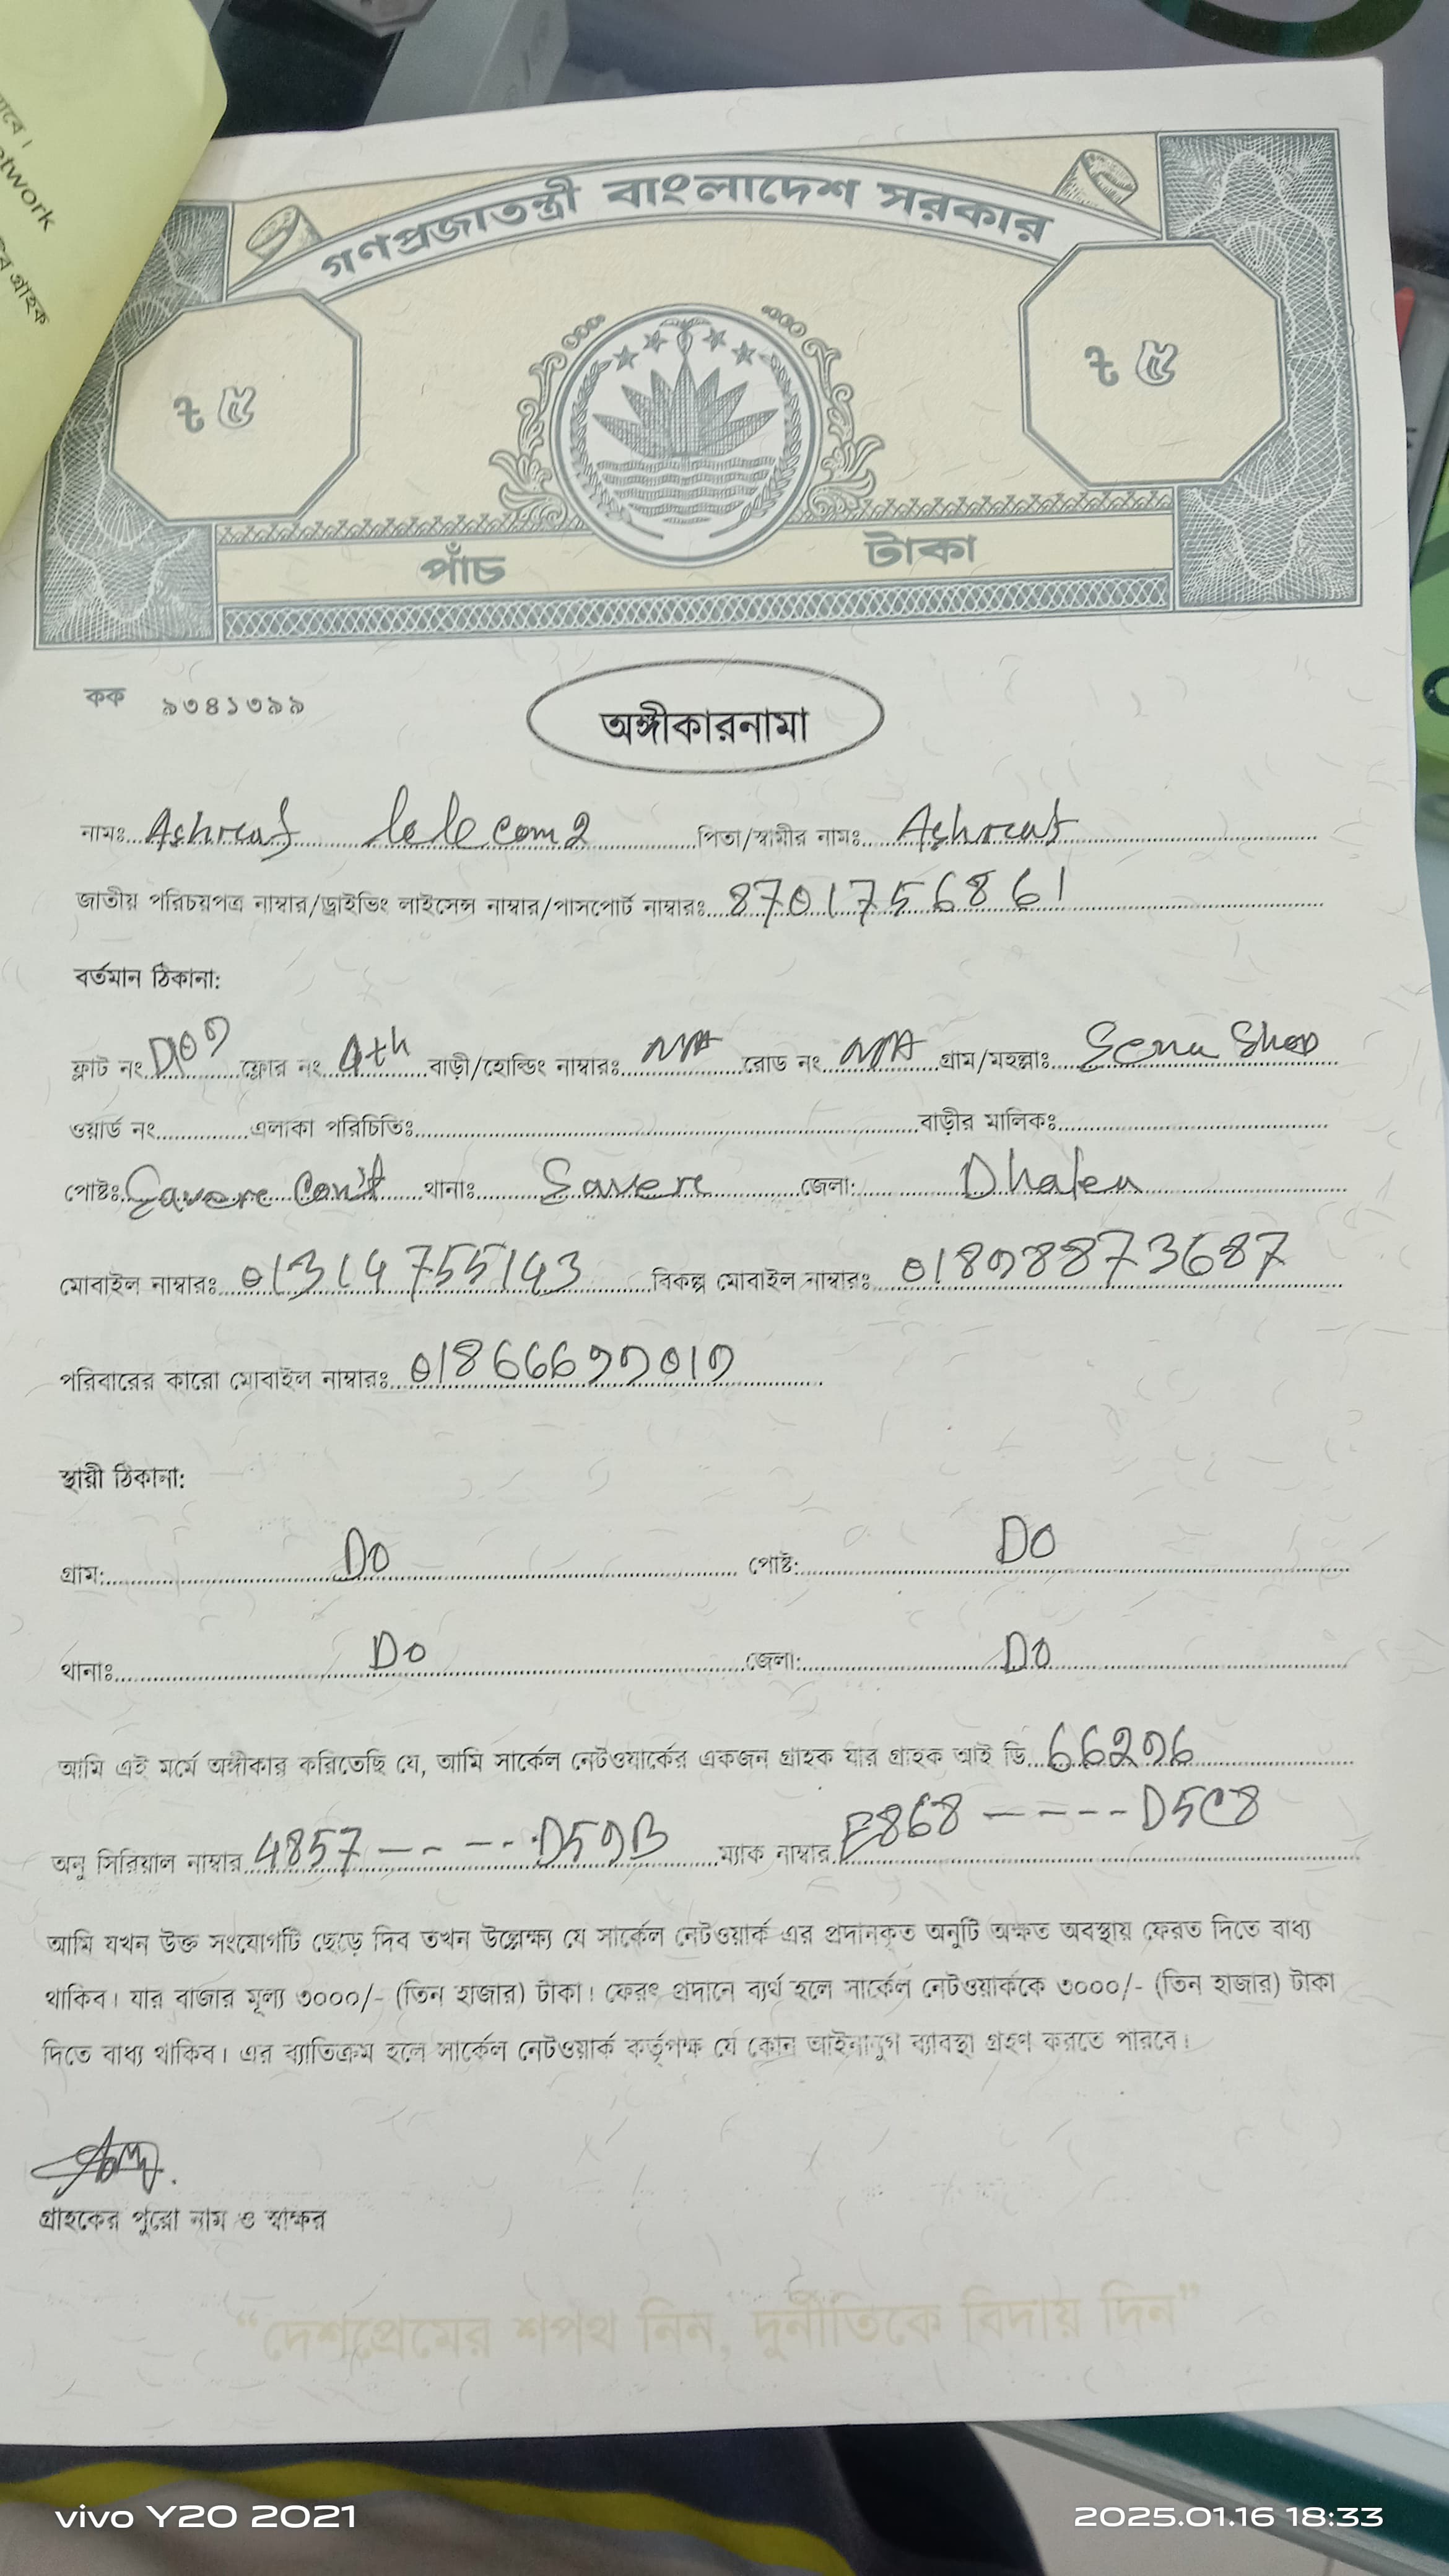 যাবে।
etwork
গ্রাহক
গণপ্রজাতন্ত্রী বাংলাদেশ সরকার
৳ ৫ ৳ ৫
পাঁচ টাকা
কক ৯৩৪১৩৯৯
অঙ্গীকারনামা
নামঃ Ashraf telecom2 পিতা/স্বামীর নামঃ Ashraf
জাতীয় পরিচয়পত্র নাম্বার/ড্রাইভিং লাইসেন্স নাম্বার/পাসপোর্ট নাম্বারঃ 8701756861
বর্তমান ঠিকানা:
ফ্লাট নং D09 ফ্লোর নং 4th বাড়ী/হোল্ডিং নাম্বারঃ N/A রোড নং N/A গ্রাম/মহল্লাঃ Sena Shop
ওয়ার্ড নং এলাকা পরিচিতিঃ বাড়ীর মালিকঃ
পোষ্টঃ Savar Can't থানাঃ Savar জেলা: Dhaka
মোবাইল নাম্বারঃ 01314755143 বিকল্প মোবাইল নাম্বারঃ 01898873687
পরিবারের কারো মোবাইল নাম্বারঃ 01866699019
স্থায়ী ঠিকানা:
গ্রাম: DO পোষ্ট: DO
থানাঃ DO জেলা: DO
আমি এই মর্মে অঙ্গীকার করিতেছি যে, আমি সার্কেল নেটওয়ার্কের একজন গ্রাহক যার গ্রাহক আই ডি 66296
অনু সিরিয়াল নাম্বার 4857 - - - - D59B ম্যাক নাম্বার E868 - - - - D5C8
আমি যখন উক্ত সংযোগটি ছেড়ে দিব তখন উল্লেক্ষ্য যে সার্কেল নেটওয়ার্ক এর প্রদানকৃত অনুটি অক্ষত অবস্থায় ফেরত দিতে বাধ্য
থাকিব। যার বাজার মূল্য ৩০০০/- (তিন হাজার) টাকা। ফেরৎ প্রদানে ব্যর্থ হলে সার্কেল নেটওয়ার্ককে ৩০০০/- (তিন হাজার) টাকা
দিতে বাধ্য থাকিব। এর ব্যাতিক্রম হলে সার্কেল নেটওয়ার্ক কর্তৃপক্ষ যে কোন আইনানুগ ব্যাবস্থা গ্রহণ করতে পারবে।
গ্রাহকের পুরো নাম ও স্বাক্ষর
“দেশপ্রেমের শপথ নিন, দুর্নীতিকে বিদায় দিন”
vivo Y20 2021 2025.01.16 18:33